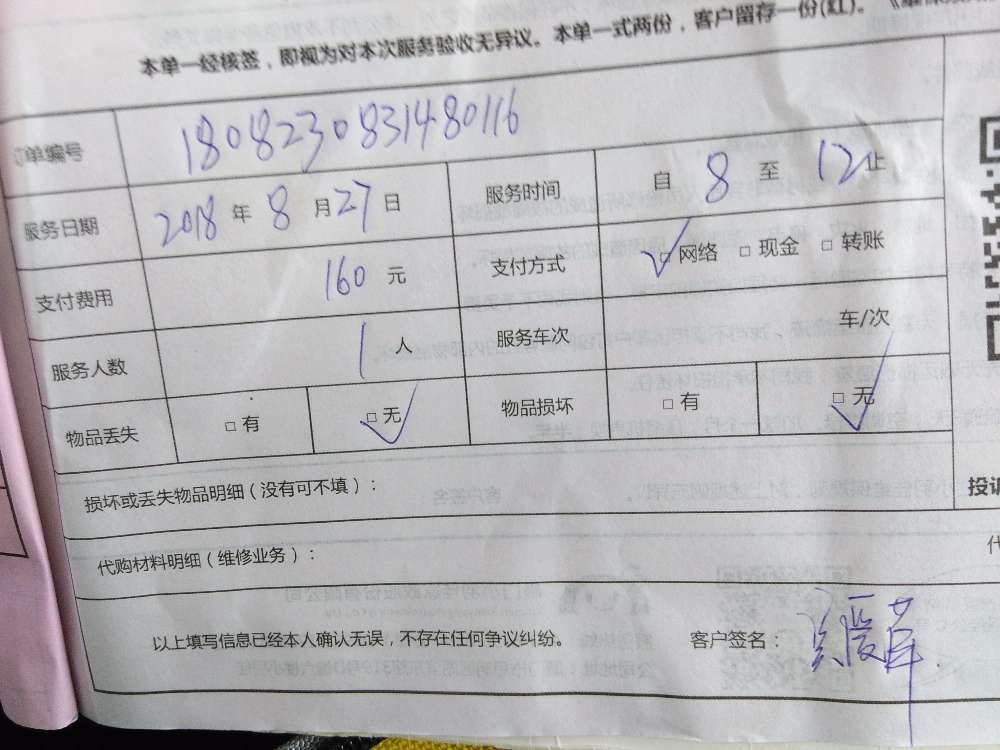 本单一经核签，即视为对本次服务验收无异议。本单一式两份，客户留存一份(红)。
订单编号 180823083148 0116
服务日期 2018年8月27日 服务时间 自8至12止
支付费用 160元 支付方式 □网络 □现金 □转账
服务人数 1人 服务车次 车/次
物品丢失 □有 □无 物品损坏 □有 □无
损坏或丢失物品明细（没有可不填）：
投诉
代购材料明细（维修业务）：
以上填写信息已经本人确认无误，不存在任何争议纠纷。 客户签名：